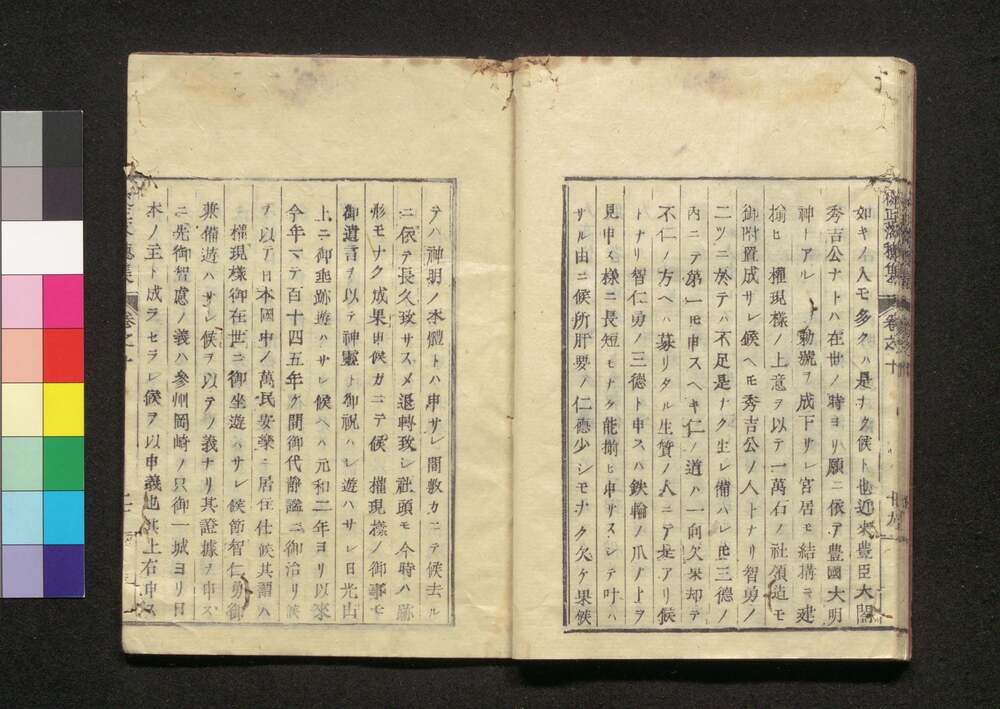 如キノ人モ多クハ是ナク候ト也近来豊臣大閤
秀吉公ナトハ在世ノ時ヨリ願ニ依テ豊國大明
神トアル勅號ヲ成下サレ宮居モ結構モ建
揃ヒ權現様ノ上意ヲ以テ一萬石ノ社領迄モ
御附置成サレ候ヘ𪜈秀吉公ノ人トナリ智勇ノ
二ツニ於テハ不足是ナク生レ備ハレ𪜈三德ノ
内ニテ第一𪜈申スヘキ仁ノ道ハ一向欠果却テ
不仁ノ方ヘハ募リタル生質ノ人ニテ是アリ候
トナリ智仁勇ノ三德ト申スハ鉄輪ノ爪ノ上ヲ
見申ス様ニ長短モナク能揃ヒ申サスシテ叶ハ
サル由ニ候所肝要ノ仁德少シモナク欠ケ果候
卷之十
テハ神明ノ本體トハ申サレ間敷カニテ候去ル
ニ依テ長久致サスメ退轉致シ社頭モ今時ハ跡
形モナク成果申候ガニテ候權現様ノ御事モ
御遺言ヲ以テ神靈ト御祝ハレ遊ハサレ日光山
上ニ御垂跡遊ハサレ候ヘハ元和二年ヨリ以來
今年マテ百十四五年ケ間御代静謐ニ御治リ候
ヲ以テ日本國中ノ萬民安樂ニ居住仕候其謂ハ
權現様御在世ニ御坐遊ハサレ候節智仁勇御
兼備遊ハサレ候ヲ以テノ義ナリ其證據ヲ申ス
ニ先御智慮ノ義ハ参州岡崎ノ只御一城ヨリ日
本ノ主ト成ラセラレ候ヲ以申義也其上右申ス
卷之十